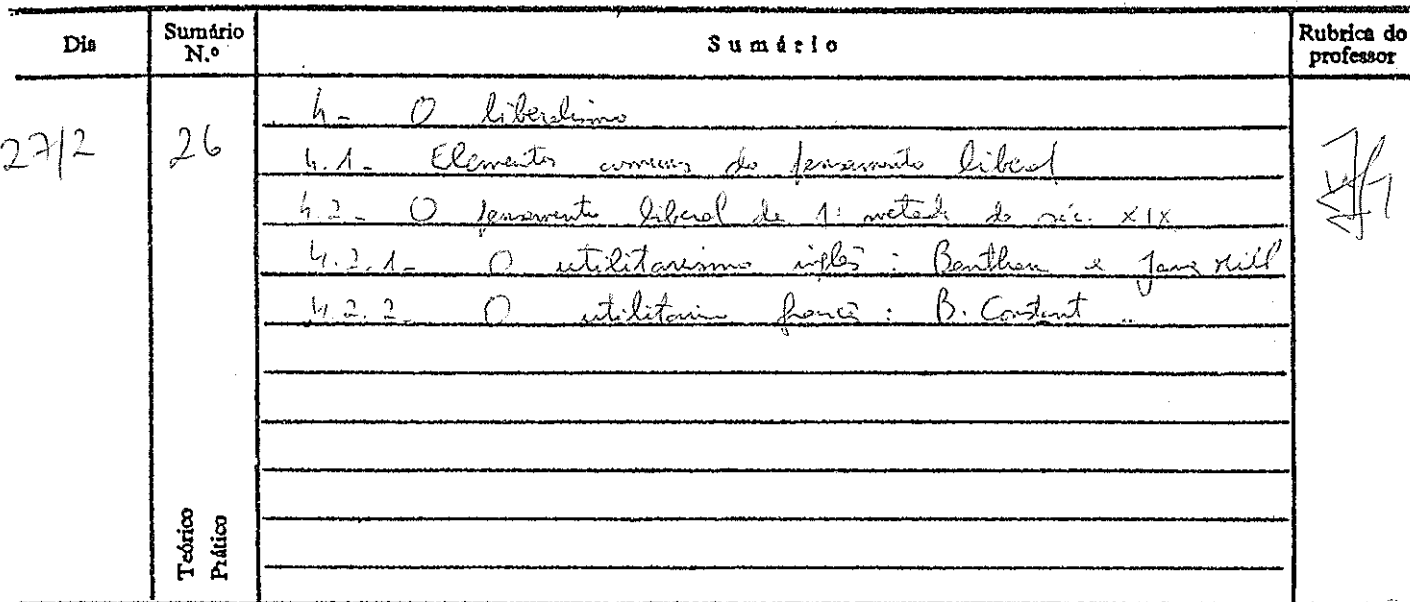 Dia
Sumário N.º
Sumário
Rubrica do professor
27/2
26
4- O liberalismo
4.1- Elementos comuns do pensamento liberal
4.2- O pensamento liberal da 1ª metade do séc. XIX
4.2.1- O utilitarismo inglês: Bentham e James Mill
4.2.2- O utilitarismo francês: B. Constant
Teórico
Prático